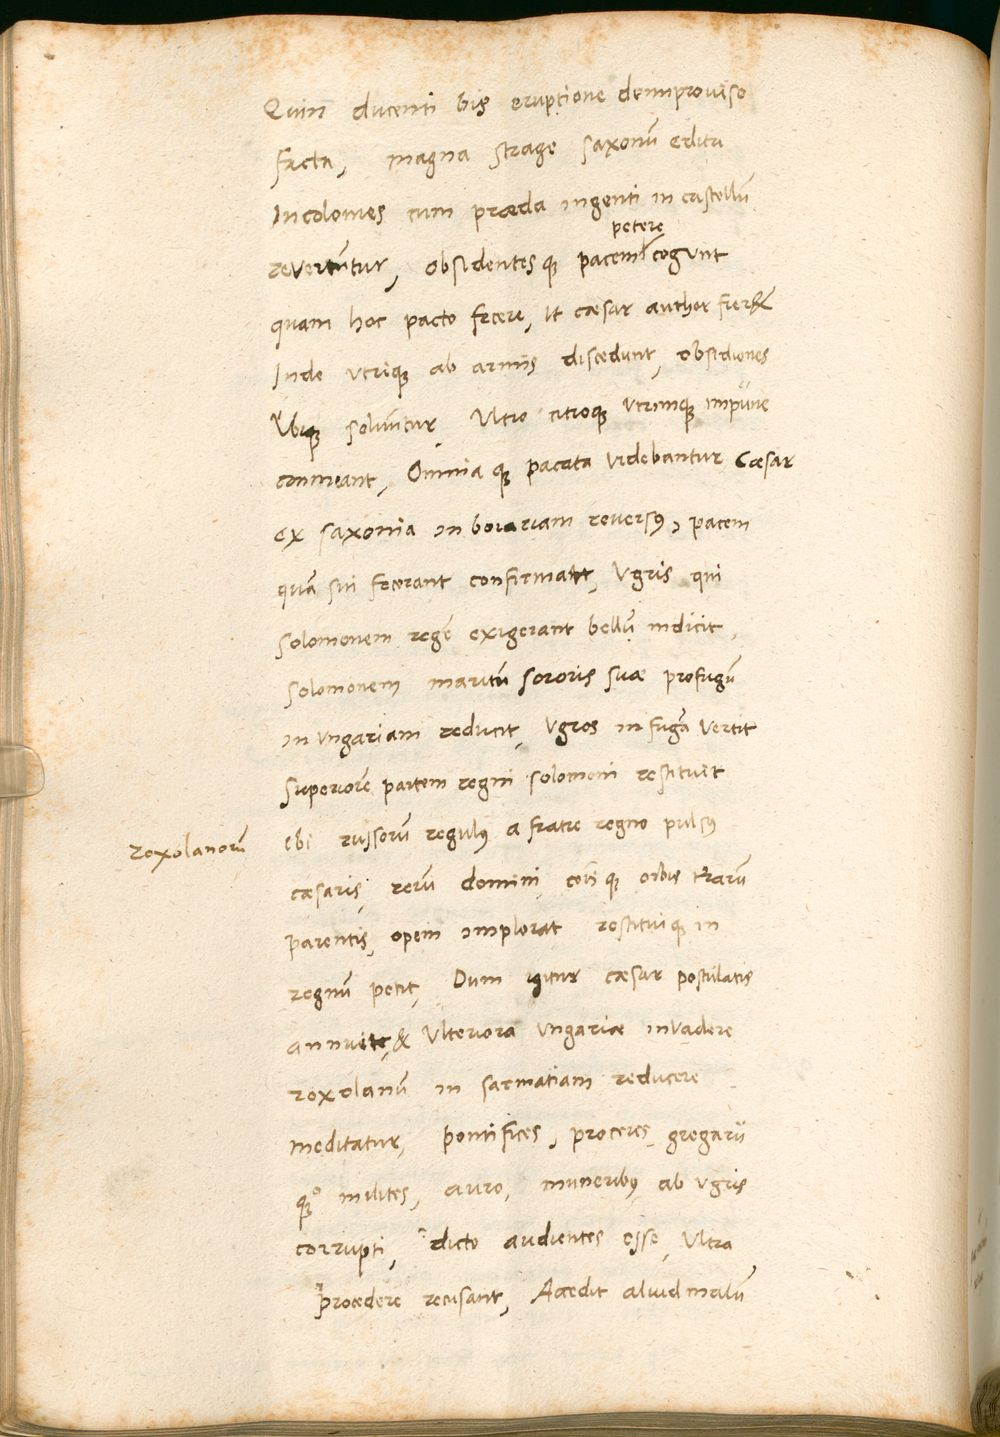 Quin ducenti bis eruptione deimproviso
facta, magna strage saxonũ edita
Incolomes cum præda ingenti in castellũ
petere
revertũtur, obsidentesque pacem cogunt
quam hoc pacto fecere, ut cæsar author
Inde utrique ab armis discedunt, obsidiones
Ubique solvũtur Ultro citroque utrimque impune
conmeant, Omnia que pacata videbantur Cæsar
ex saxonia in boiariam reversus, pacem
quã sui fecerant confirmat, Ugris qui
solomonem regẽ exigerant bellũ indicit,
solomonem maritũ sororis suæ profugũ
in ungariam reducit, Ugros in fugã vertit
Superiorẽ partem regni solomoni restituit
roxolanorũ
ebi russorũ regulus a fratre regno pulsus
cæsaris, rerũ domini, que orbis
parentis, opem implorat restituique in
regnũ petit, Dum igitur cæsar postulatis
annuit, & Ulteriora ungariæ invadere
roxolanũ in sarmatiam reducere
meditatur, pontifices, proceres, gregarii
que milites, auro, muneribus, ab ugris
corrupti, dicto audientes esse, Ultra
procedere recusant, Accedit aliud malũ